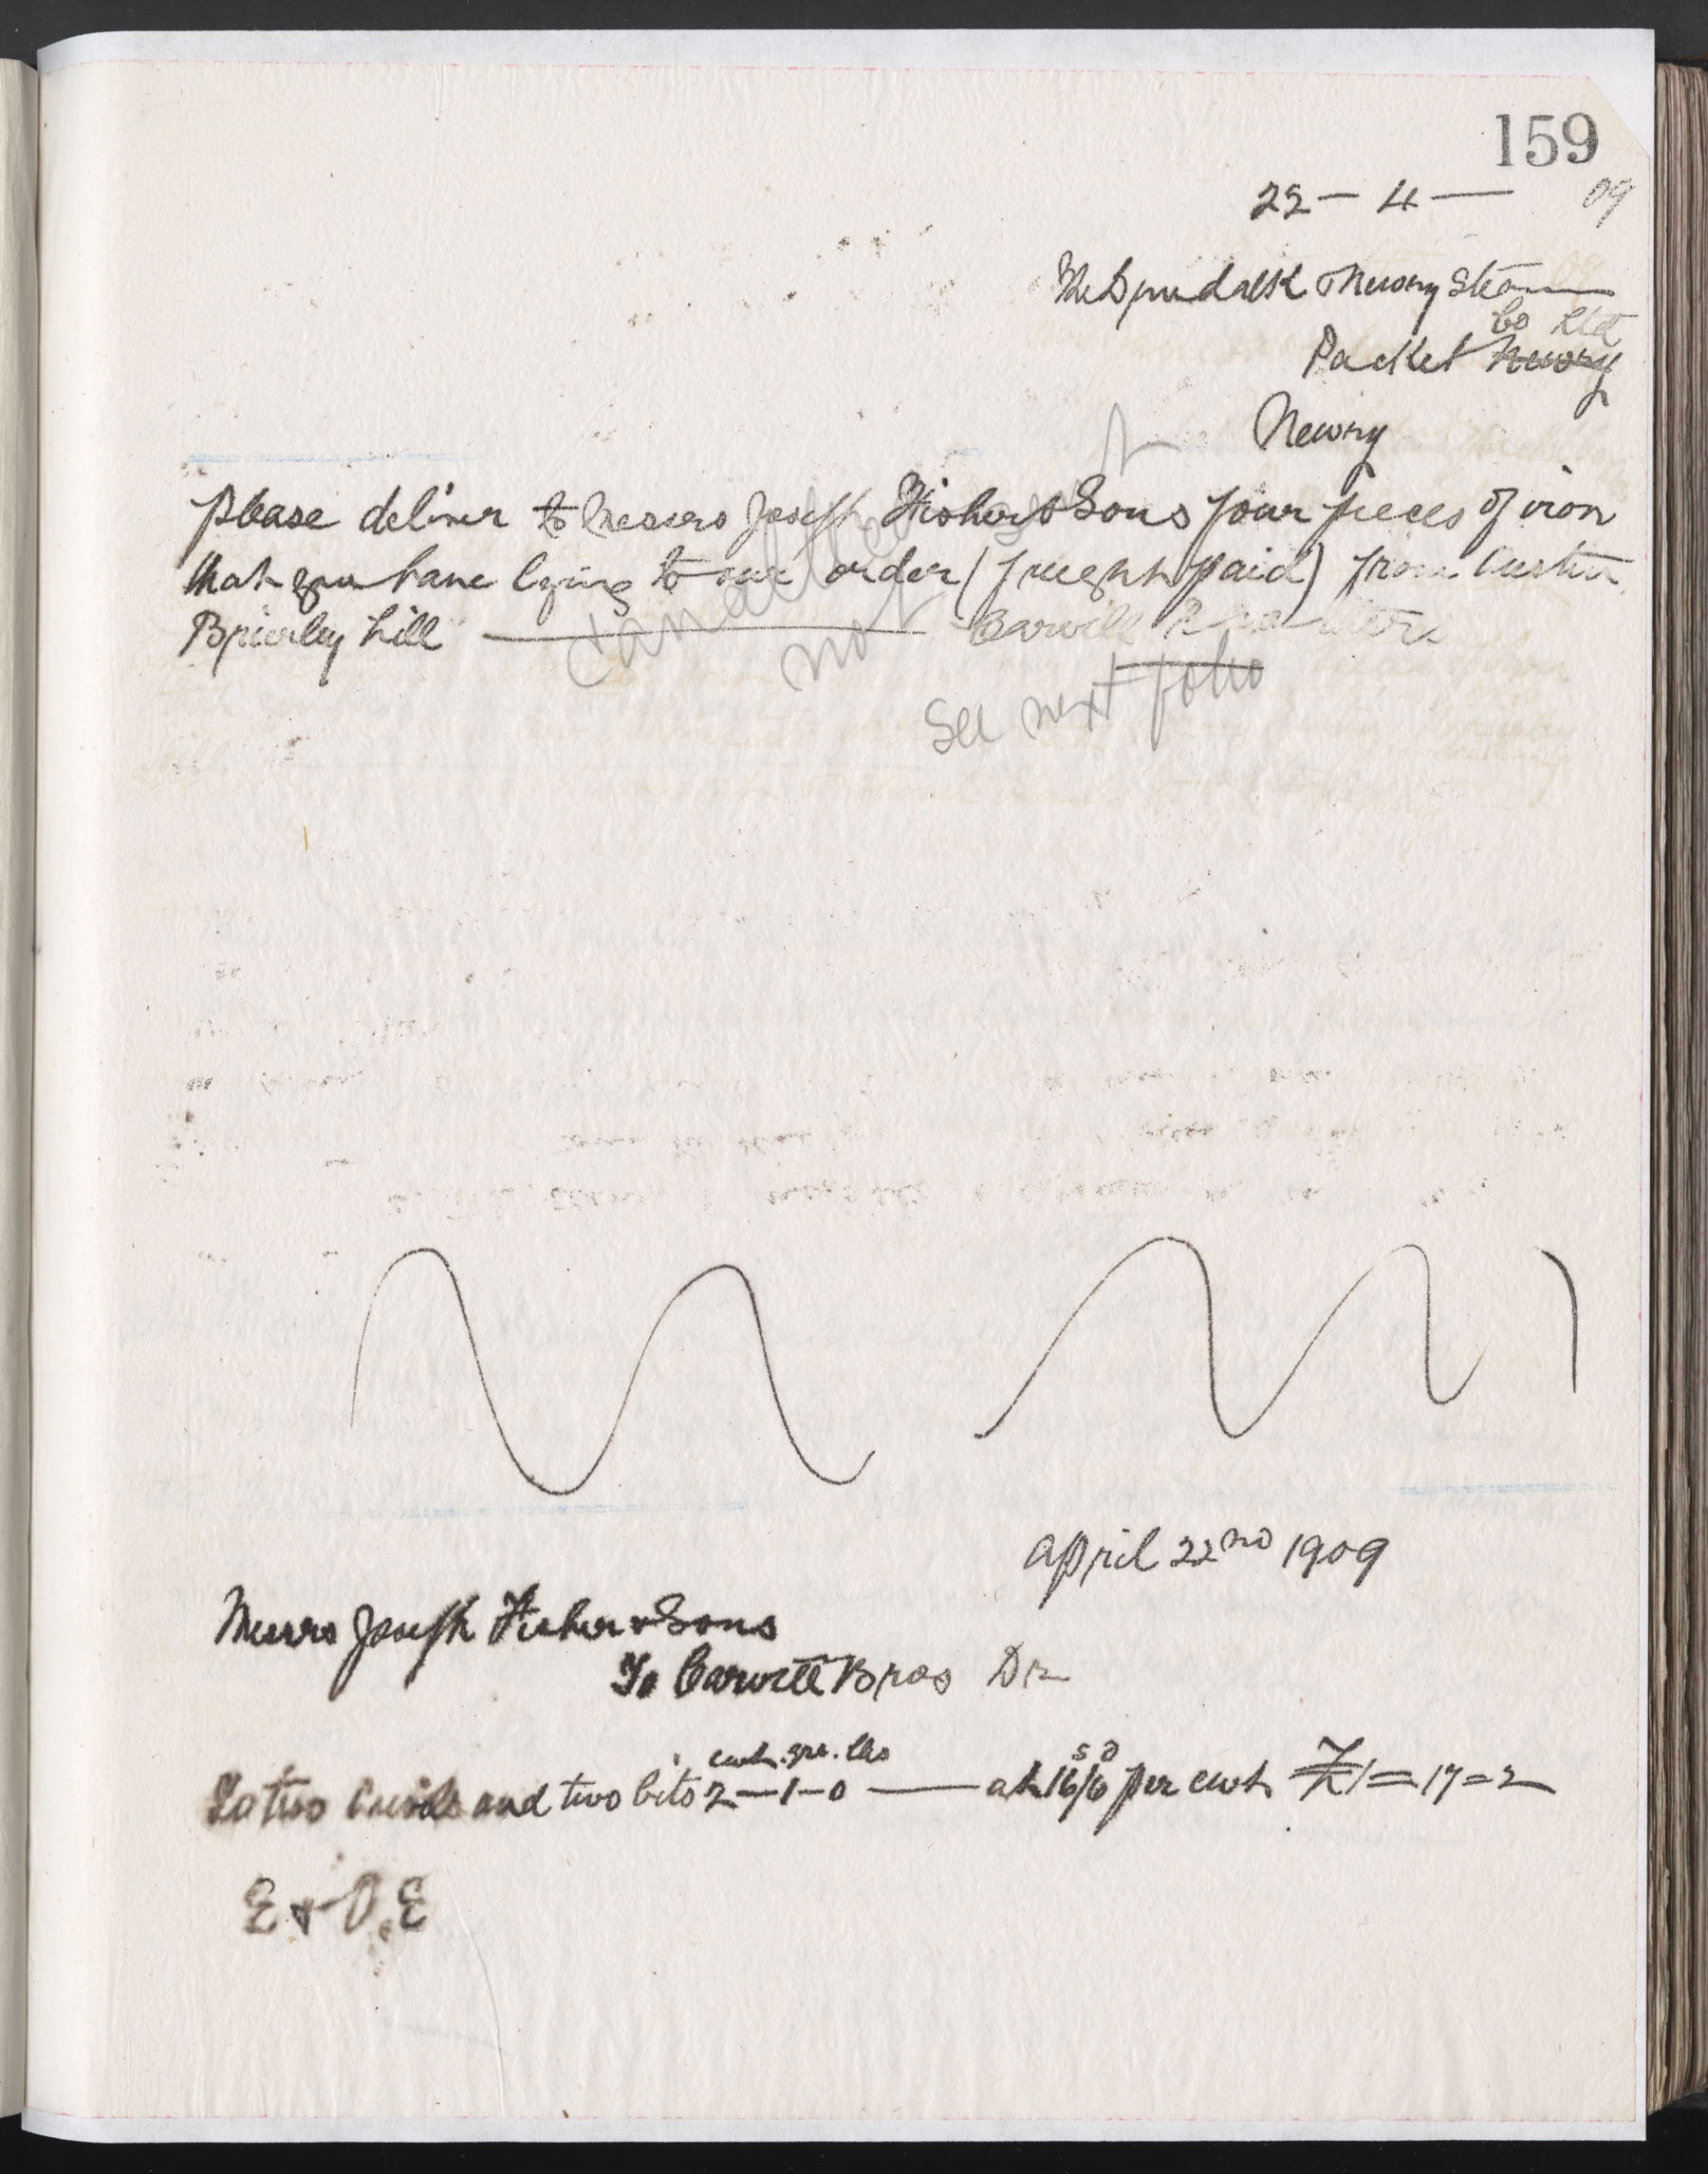 159
22 - 4 - 09
The Dundalk & Newry Steam
Co Ltd
Packet Newry
Newry
Please deliver to Messrs Joseph Fisher & Sons four pieces of iron
that you have lying to our order (freight paid) from
Brierley hill — Carvill
Cancelled
not
See next folio
April 22nd 1909
Messrs Joseph Fisher & Sons
To Carvill Bros Dr
cwt. qrs. lbs
s d
To two and two bits 2-1-0 — at 16/6 per cwt £1=17=2
E & O.E